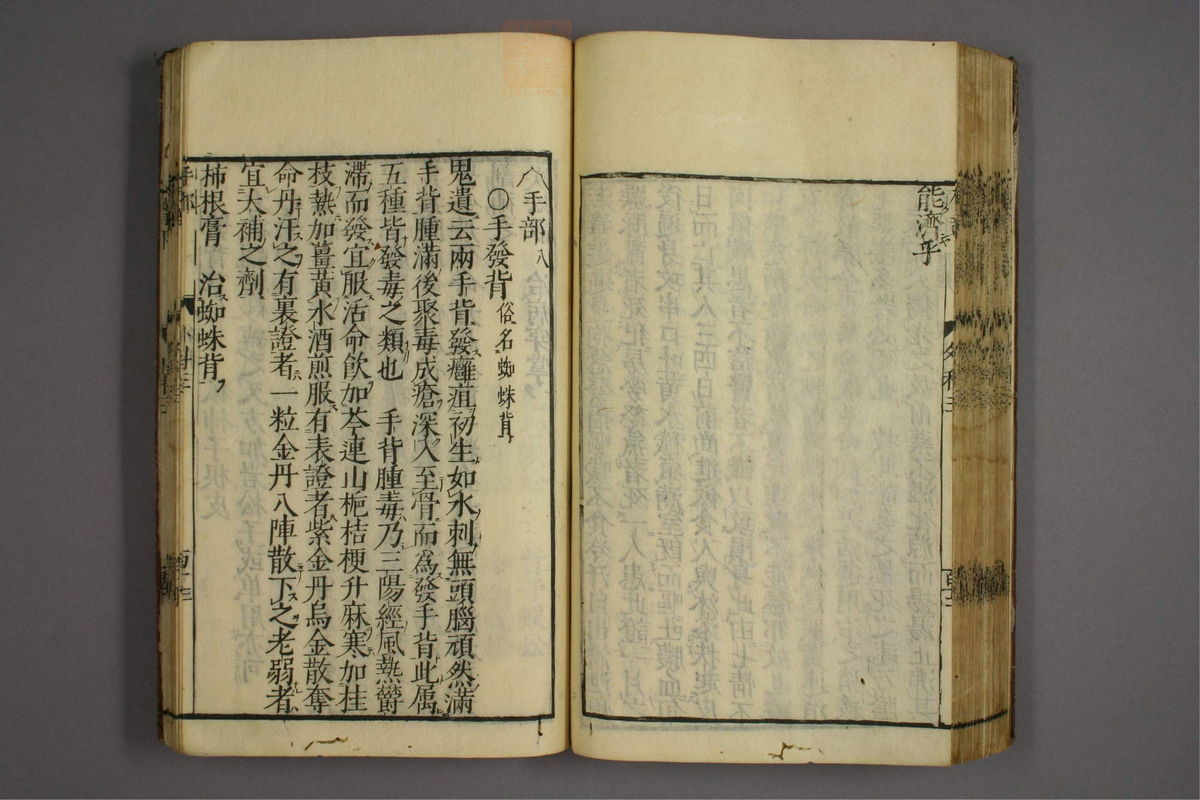 能濟乎
手部 八
○手發背 俗名蜘蛛背
鬼遺云兩手背發癰疽初生如水刺無頭腦頑然滿
手背腫滿後聚毒成瘡深入至骨而為發手背此属
五種皆發毒之類也 手背腫毒乃三陽經風熱欝
滯而發宜服活命飲加芩連山梔桔梗升麻寒加桂
枝熱加薑黃水酒煎服有表證者紫金丹烏金散奪
命丹汗之有裏證者一粒金丹八陣散下之老弱者
宜大補之劑
柿根膏 治蜘蛛背
手部